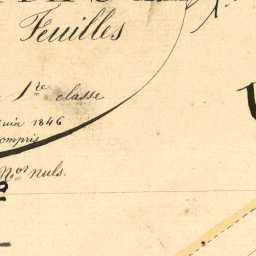 Feuilles
1re classe
juin 1846
compris
Nos nuls.